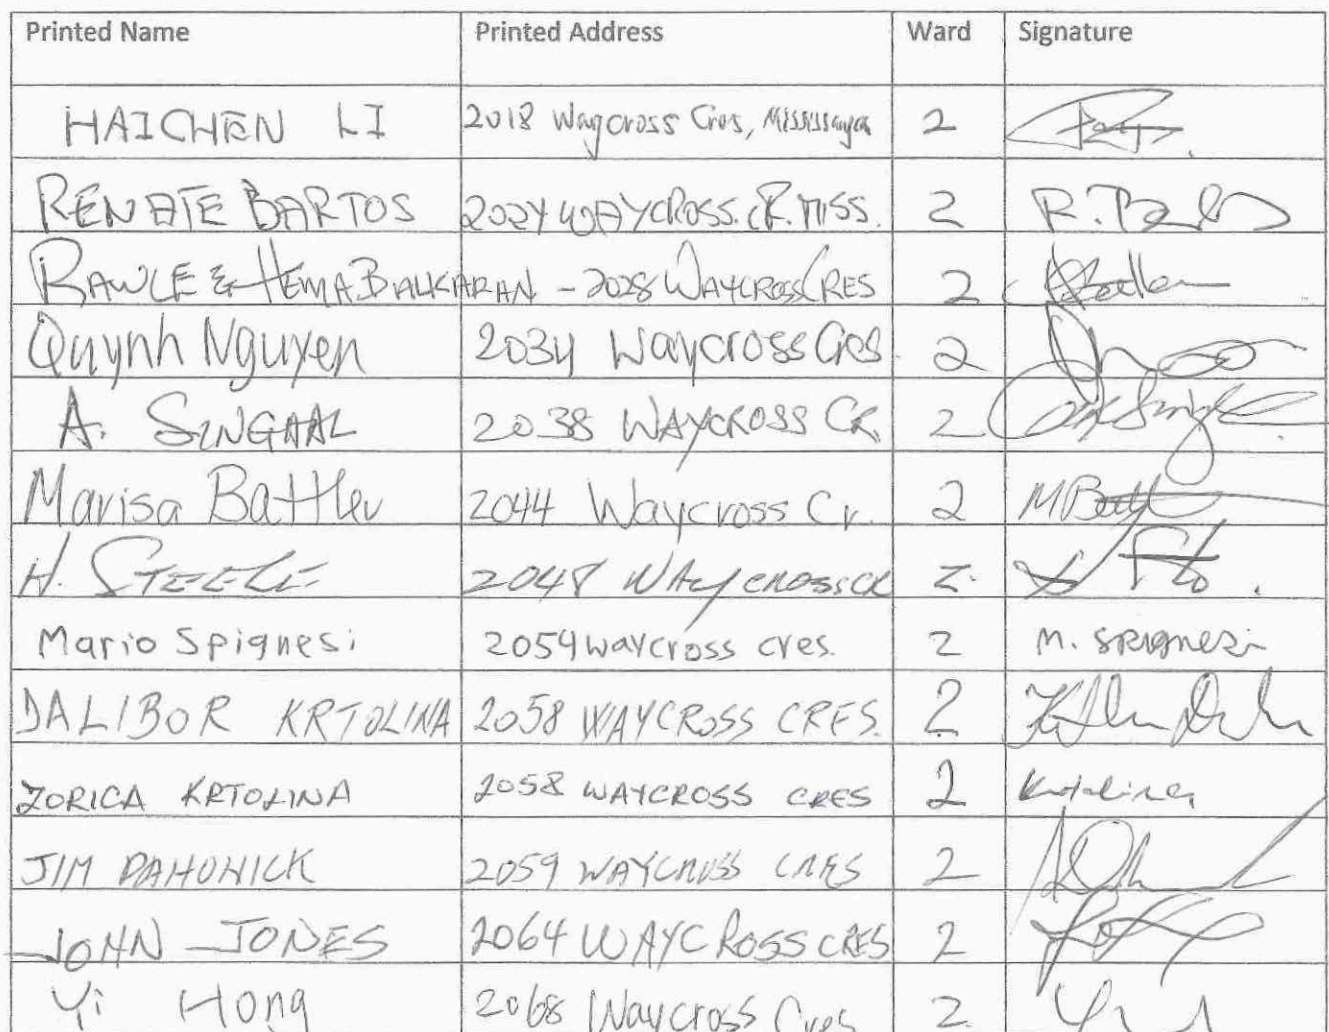 Printed Name Printed Address Ward Signature
HAICHEN LI 2018 Waycross Cres, Mississauga 2
RENATE BARTOS 2024 WAYCROSS. CR. MISS. 2 R.
RAWLE & HEMA BALKARAN - 2028 WAYCROSS CRES 2
Quynh Nguyen 2034 Waycross Cres 2
A. SINGAAL 2038 WAYCROSS CR. 2
Marisa Battler 2044 Waycross Cr. 2 M
H. STEELE 2048 WAYCROSS CR 2.
Mario Spignesi 2054 waycross cres. 2 M. SPIGNESI
DALIBOR KRTOLINA 2058 WAYCROSS CRES. 2
ZORICA KRTOLINA 2058 WAYCROSS CRES 2 Krtolina
JIM 2059 WAYCROSS CRES 2
JOHN JONES 2064 WAYCROSS CRES 2
Yi Hong 2068 Waycross Cres 2